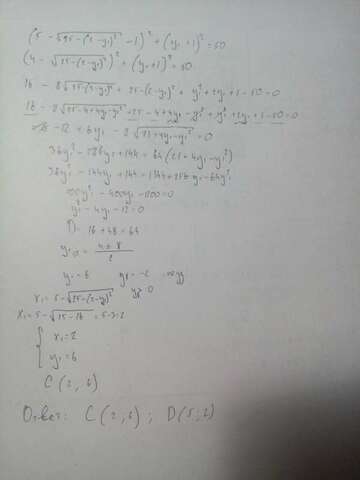 (5 - √(25-(2-y₁)²) - 1)² + (y₁+1)² = 50
(4 - √(25-(2-y₁)²))² + (y₁+1)² = 50
16 - 8√(25-(2-y₁)²) + 25-(2-y₁)² + y₁² + 2y₁ + 1 - 50 = 0
16 - 8√(25-4+4y₁-y₁²) + 25 - 4 + 4y₁ - y₁² + y₁² + 2y₁ + 1 - 50 = 0
-12 + 6y₁ - 8√(21+4y₁-y₁²) = 0
36y₁² - 144y₁ + 144 = 1344 + 256y₁ - 64y₁²
100y₁² - 400y₁ - 1200 = 0
y₁² - 4y₁ - 12 = 0
D = 16 + 48 = 64
y₁,₂ = (4 ± 8)/2
y₁ = 6 y₂ = -2
x₁ = 5 - √(25-(2-y₁)²)
x₁ = 5 - √(25-16) = 5-3=2
{ x₁ = 2
y₁ = 6
C (2, 6)
Ответ: C (2, 6) ; D(5; 6)